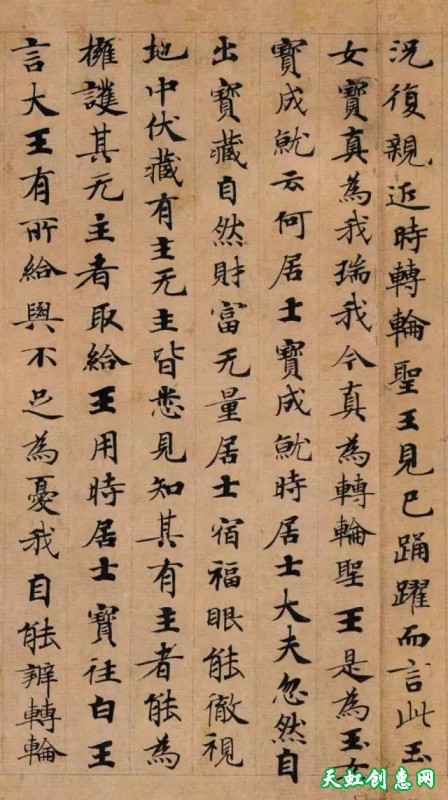 况復親近時轉輪聖王見已踊躍而言此玉
女寶真為我瑞我今真為轉輪聖王是為玉女
寶成就云何居士寶成就時居士大夫忽然自
出寶藏自然財富无量居士宿福眼能徹視
地中伏藏有主无主皆悉見知其有主者能為
擁護其无主者取給王用時居士寶往白王
言大王有所給與不足為憂我自能辦轉輪
天虹创惠网